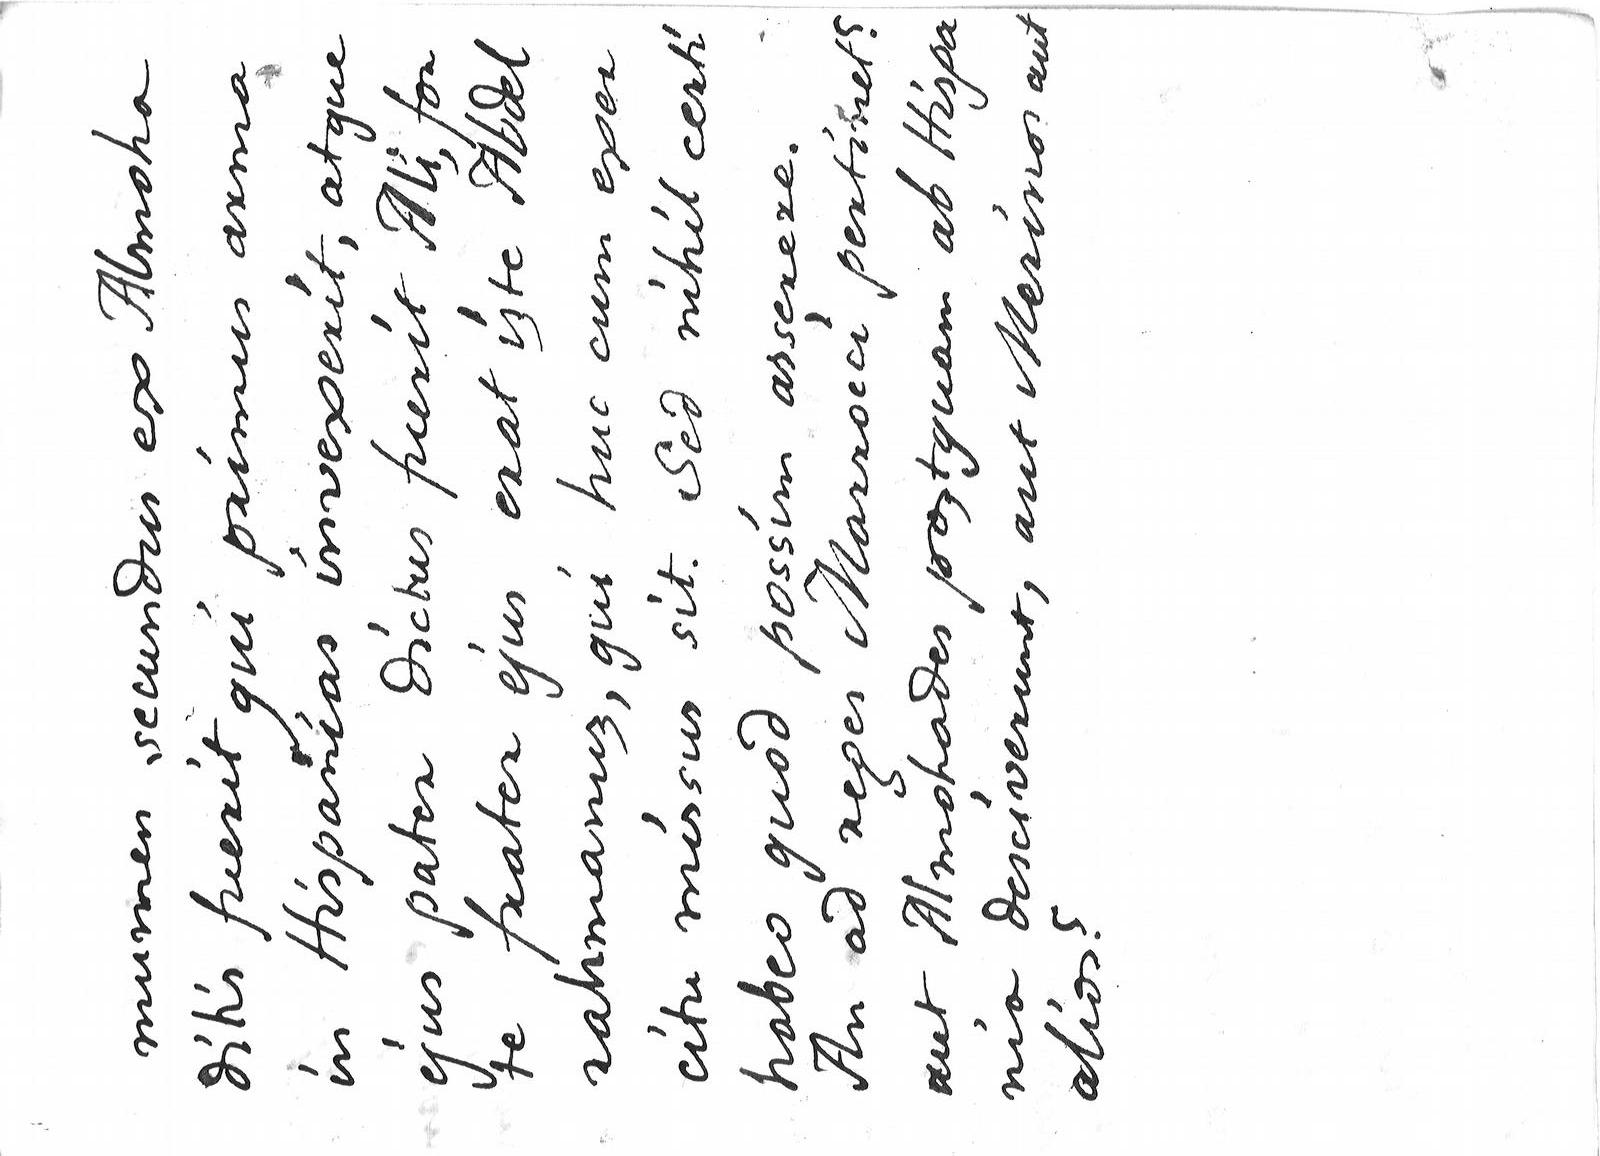 mumen secundus ex Almoha
ditis fuerit qui primus arma
in Hispanias invexerit, atque
ejus pater dictus fuerit Ali, for
te frater ejus erat iste Abdel
rahmanus, qui huc cum exer
citu missus sit. Sed nihil certi
habeo quod possim asserere.
An ad reges Marroci pertinet?
aut Almohades postquam ab Hispa
nia desciverunt, aut Merinos aut
alios?